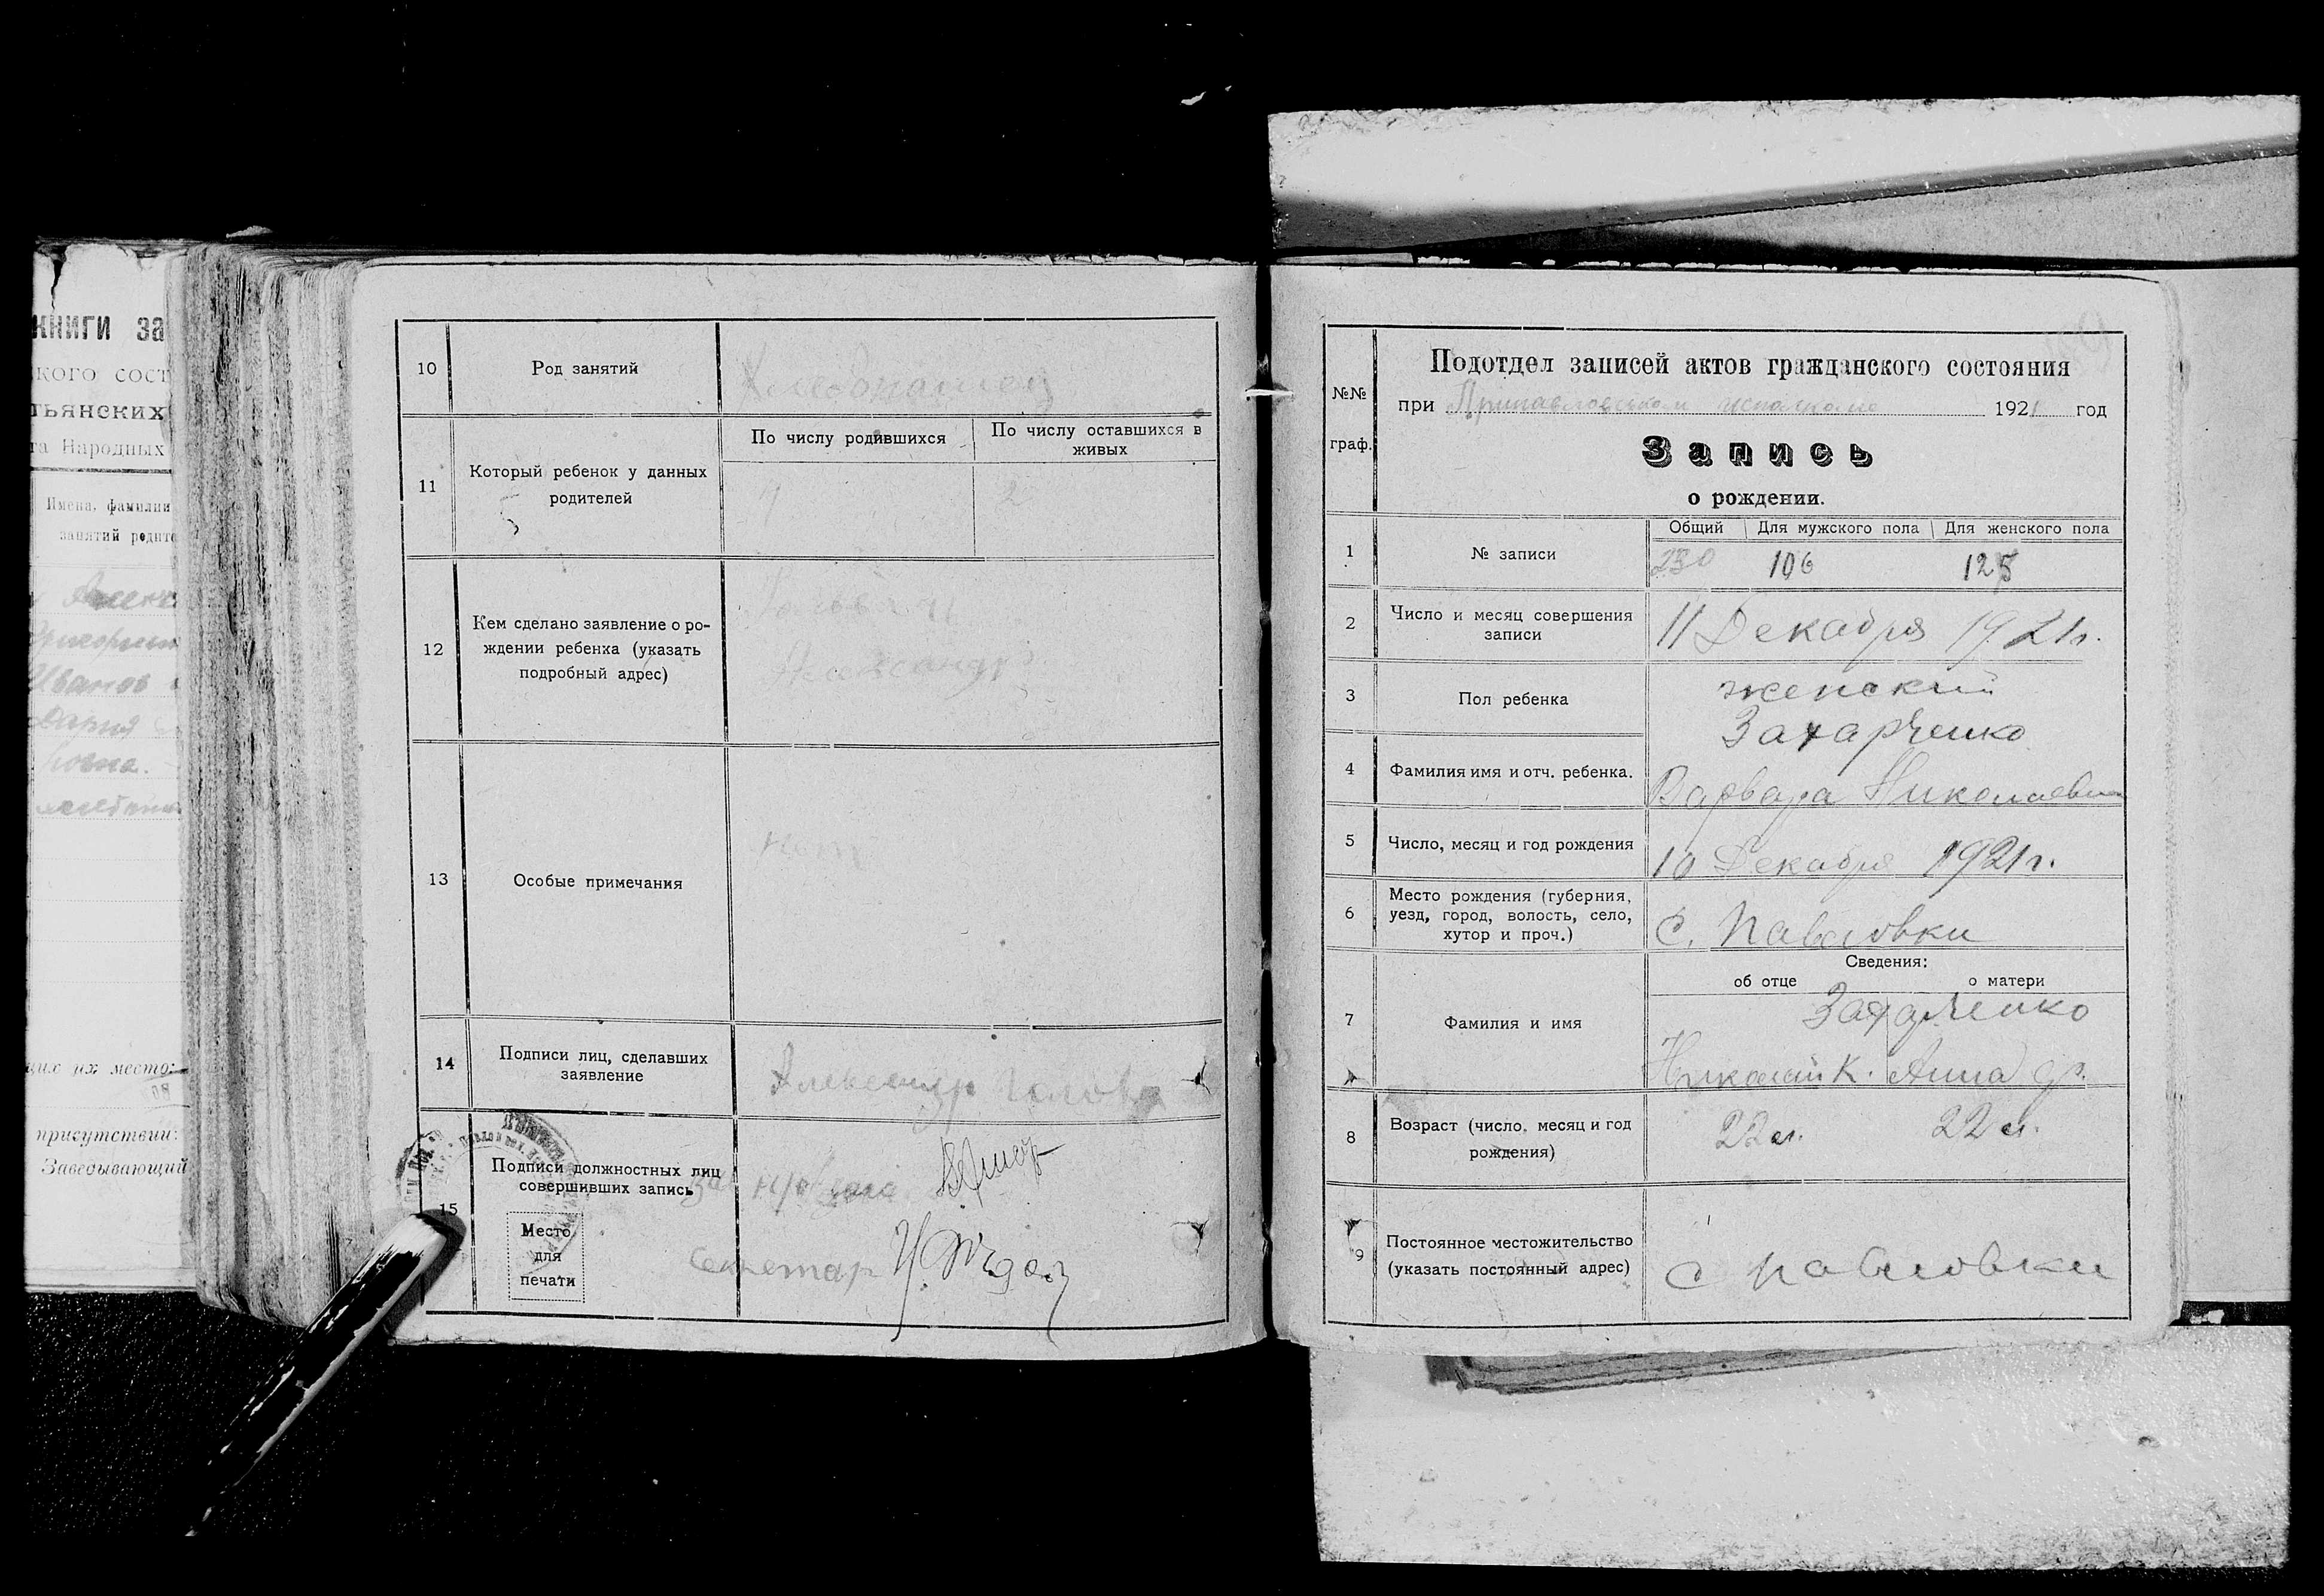 книги за
кого сост
тьянских
та Народных
Имена, фамилии
занятий родите
Иванов
Дария
щих их место:
присутствии:
Заведывающий
10 Род занятий Хлебопашец
11 Который ребенок у данных
родителей
По числу родившихся По числу оставшихся в
живых
2
12 Кем сделано заявление о ро-
ждении ребенка (указать
подробный адрес)
Александр
13 Особые примечания
нет
14 Подписи лиц, сделавших
заявление
Александр
15 Подписи должностных лиц
совершивших запись
Место
для
печати
Секретар
№№
граф.
Подотдел записей актов гражданского состояния
при 1921 год
Запись
о рождении.
Общий Для мужского пола Для женского пола
1 № записи 230 106 125
2 Число и месяц совершения
записи
11 Декабря 1921г.
3 Пол ребенка женский
Захарченко
4 Фамилия имя и отч. ребенка.
Варвара Николаевна
5 Число, месяц и год рождения
10 Декабря 1921г.
6 Место рождения (губерния,
уезд, город, волость, село,
хутор и проч.)
С. Павловки
Сведения:
об отце о матери
7 Фамилия и имя
Захарченко
Николай К. Анна
8 Возраст (число, месяц и год
рождения)
22 л. 22 л.
9 Постоянное местожительство
(указать постоянный адрес)
С Павловки